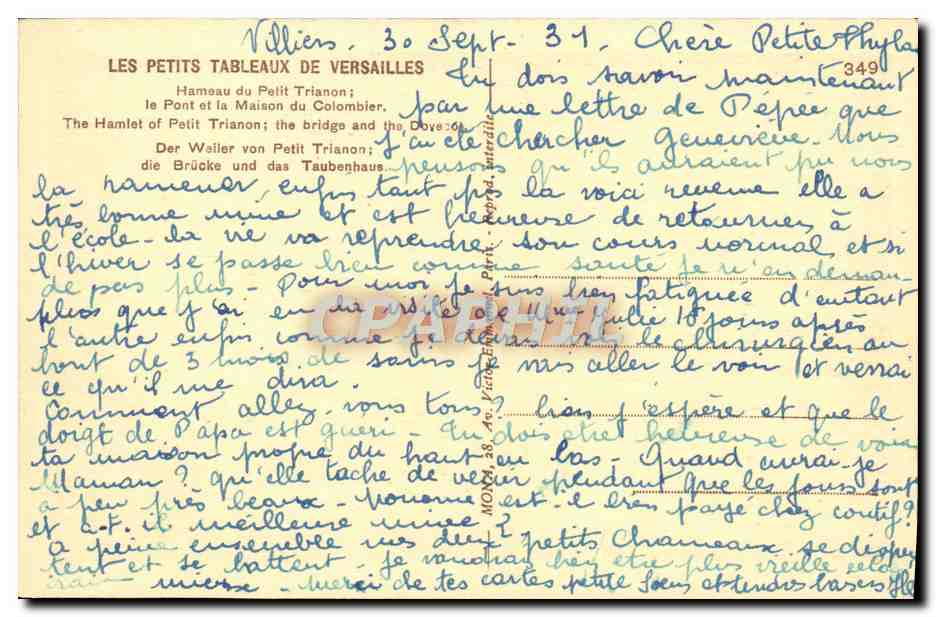 Villiers. 30 Sept - 31. Chère Petite
LES PETITS TABLEAUX DE VERSAILLES
349
Hameau du Petit Trianon;
le Pont et la Maison du Colombier.
The Hamlet of Petit Trianon; the bridge and the Dovecot
Der Weiler von Petit Trianon;
die Brücke und das Taubenhaus.
MONA, 28, Av. Victor-Emmanuel, Paris. - Reprod. interdite
CPARHII
Tu dois savoir maintenant
par une lettre de Pépée que
j'ai été chercher Geneviève. Nous
pensons qu'ils auraient pu nous
la ramener, enfin tant pis la voici revenue elle a
très bonne mine et est heureuse de retourner à
l'école - la vie va reprendre son cours normal et si
l'hiver se passe bien comme santé je n'en deman-
de pas plus - Pour moi je suis bien fatiguée d'autant
plus que j'ai eu la visite de 10 jours après
l'autre enfin comme je dois voir le chirurgien au
bout de 3 mois de soins je vais aller le voir et verrai
ce qu'il me dira.
Comment allez vous tous? bien j'espère et que le
doigt de Papa est guéri - Tu dois être heureuse de voir
ta maison propre du haut en bas - Quand aurai-je
Maman? qu'elle tache de venir pendant que les jours sont
à peu près beaux - est-il bien payé chez
et a-t-il meilleure mine?
à peine ensemble mes deux petits Chameaux se dispu
tent et se battent - je voudrais bien être plus vieille
mieux - merci de tes cartes petite et tendres baisers